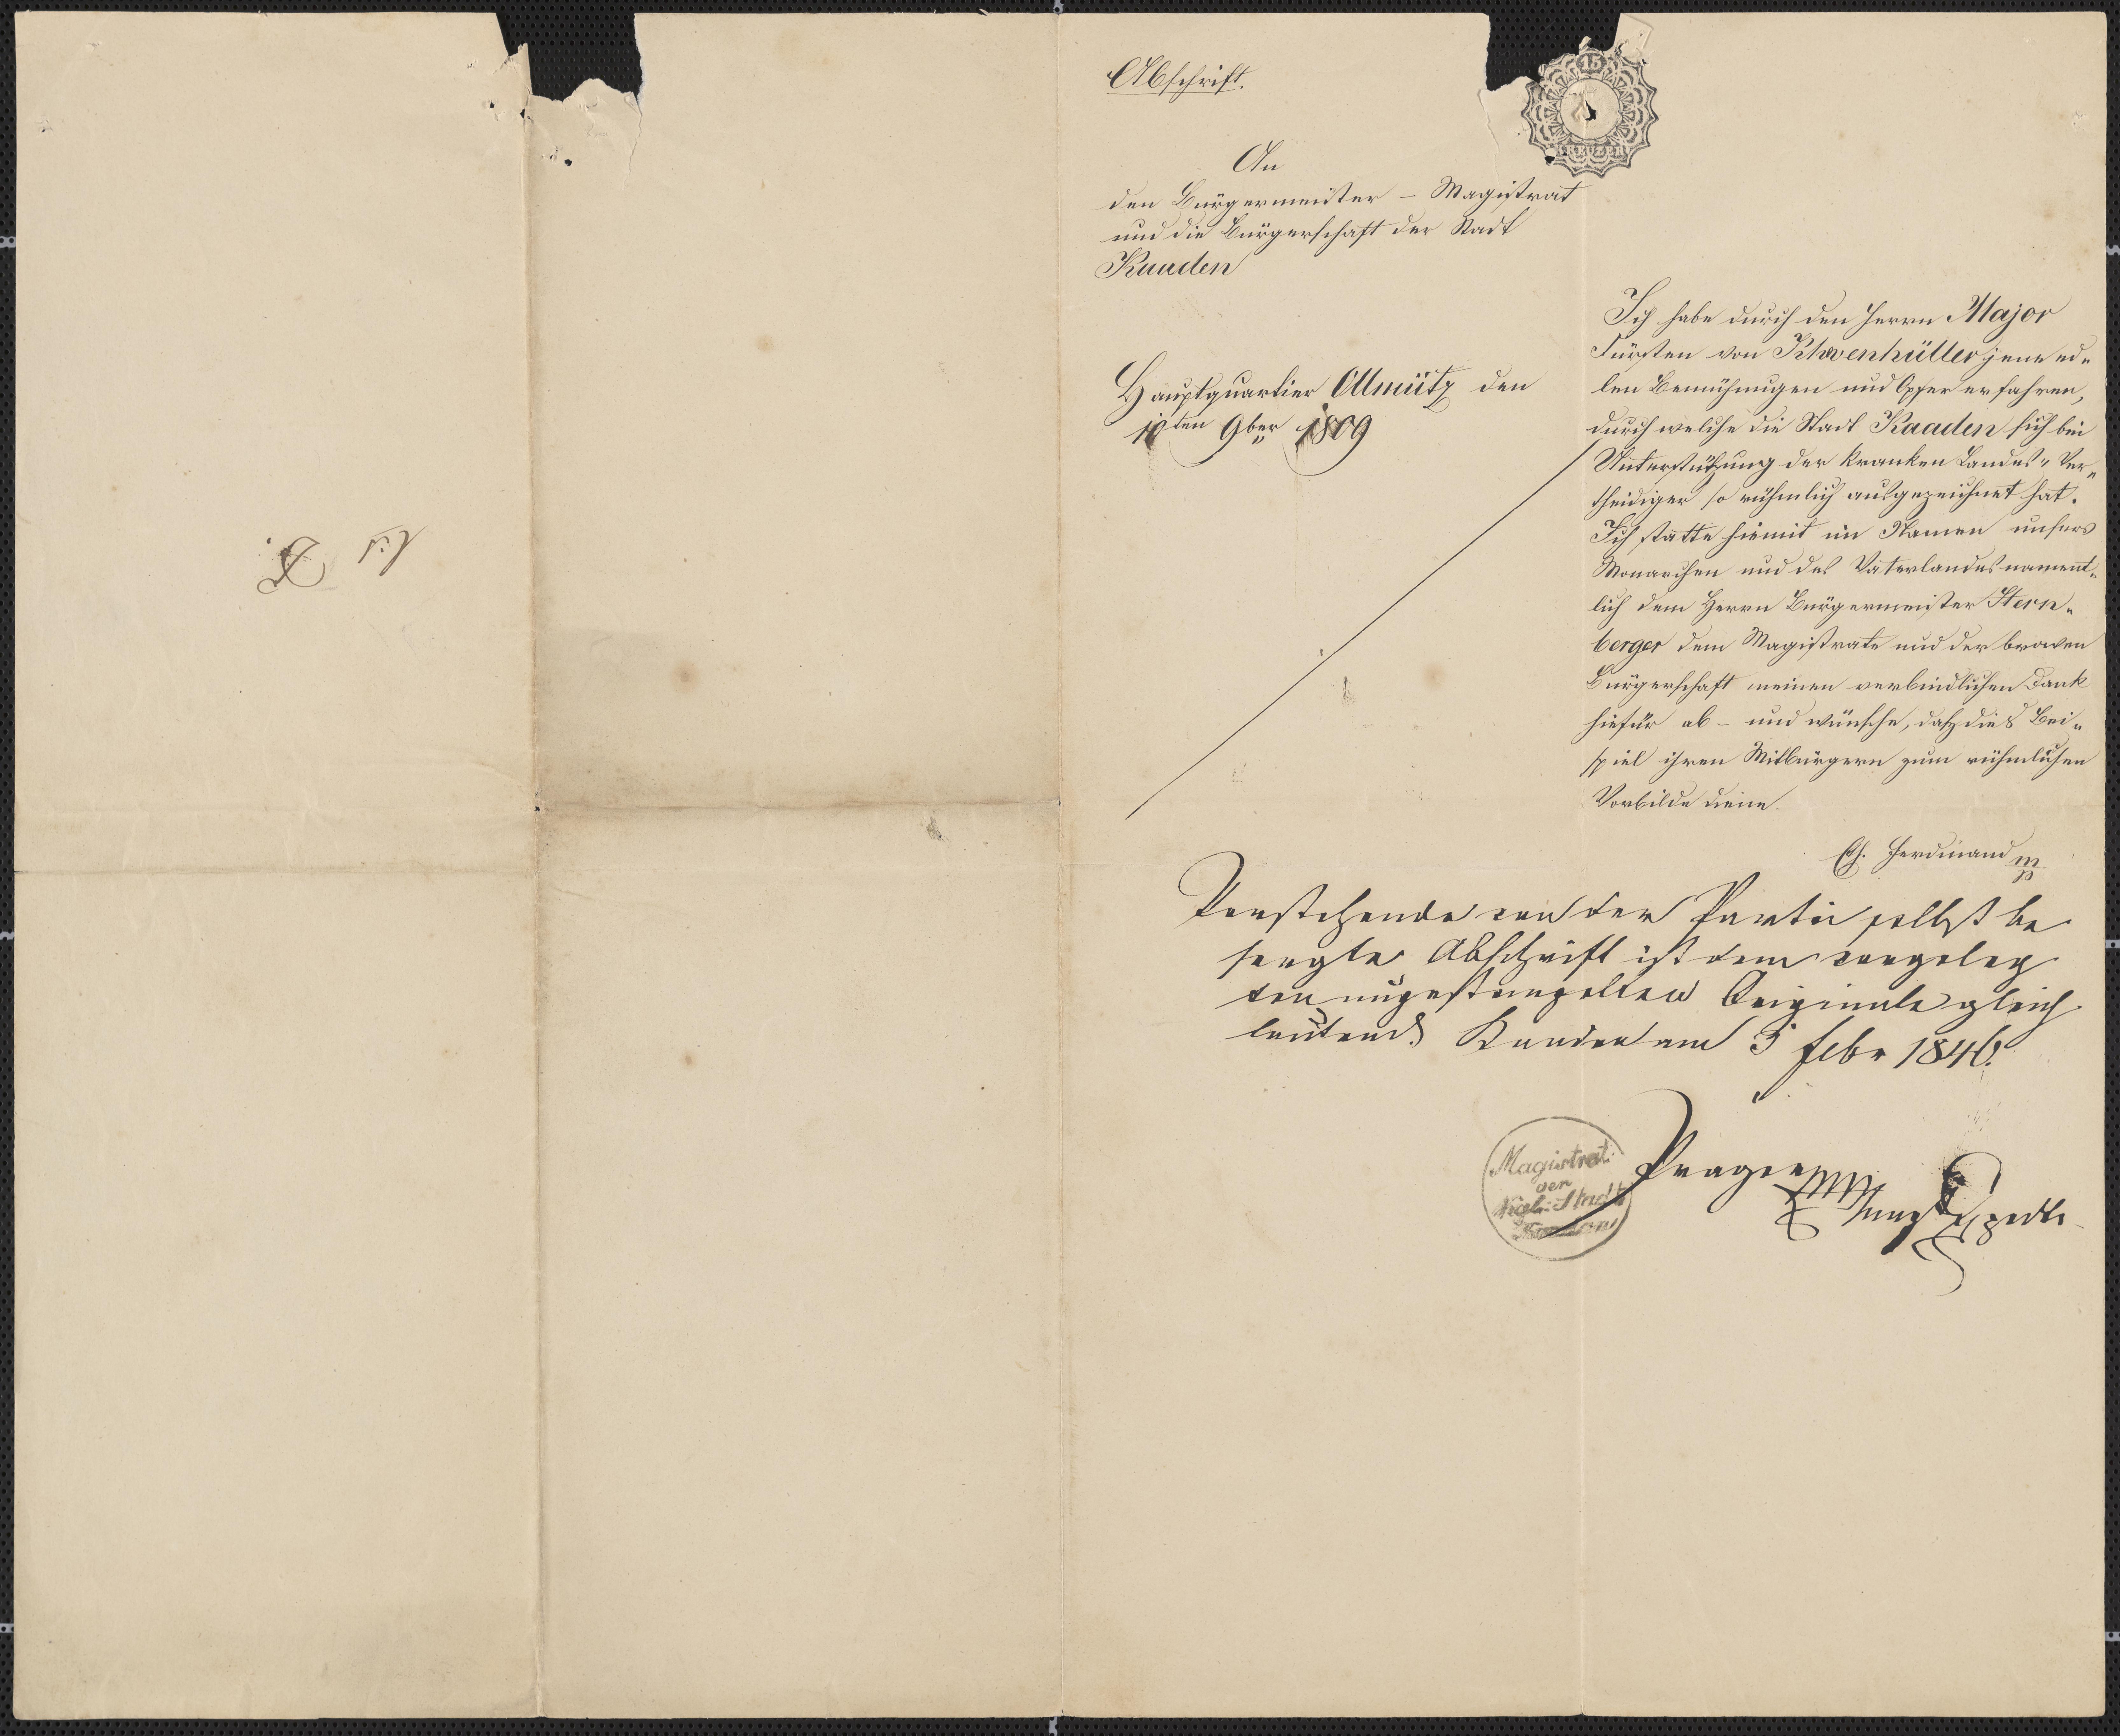 Abschrift.
15
KREUZER
An
den Bürgermeister – Magistrat
und die Bürgerschaft der Stadt
Kaaden
Hauptquartier Ollmütz den
10ten 9ber 1809
Ich habe durch den Herrn Major
Fürsten von Khevenhüller jene ed„
len Bemühungen und Opfer erfahren,
durch welche die Stadt Kaaden sich bei
Unterstützung der kranken Landes„Ver„
theidiger so rühmlich ausgezeichnet hat.
Ich statte hiemit im Namen unsers
Monarchen und des Vaterlandes nament„
lich dem Herrn Bürgermeister Stern„
berger dem Magistrate und der braven
Bürgerschaft meinen verbindlichen Dank
hiefür ab – und wünsche, daß dies Bei„
spiel ihren Mitbürgern zum rühmlichen
Vorbilde diene.
Eh. Ferdinand mp
Vorstehende von der Partei selbst be
sorgte Abschrift ist dem vorgeleg
ten ungestempelten Originale gleich
lautend. Kaaden am 3 Febr 1846.
Magistrat
der
Kgl: Stadt
Kaaden
Prager mp